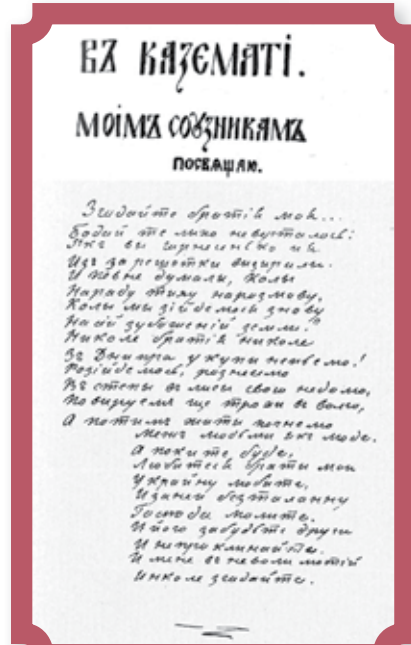 ВЪ КАЗЄМАТІ.
МОІМЪ СОУЗНИКАМЪ
ПОСВѦЩАЮ.
Згадайте братія моя...
Бодай те лихо неверталось!
Якъ ви гарнесенько ия
Изъ за решотки визирали.
И певне думали, колы
На раду тиху на розмову,
Колы мы зійдемось знову
На сій зубоженій земли?
Николе братія николе
Зъ Днипра у купи непьемо!
Розійдемось, рознесемо
Въ степы въ лисы свою недолю,
Повируемъ ще трохи въ волю,
А потимъ жыты почнемо
Межъ людьми якъ люде.
А поки те буде,
Любитеся браты мои
Украйну любите,
И за неи безталанну
Господа молите.
И його забудьте други
И непроклинайте.
И мене въ неволи лютій
Инколе згадайте.